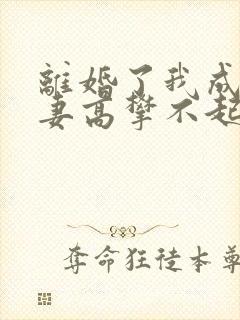 離婚了我成
妻高攀不起
奪命狂徒本尊